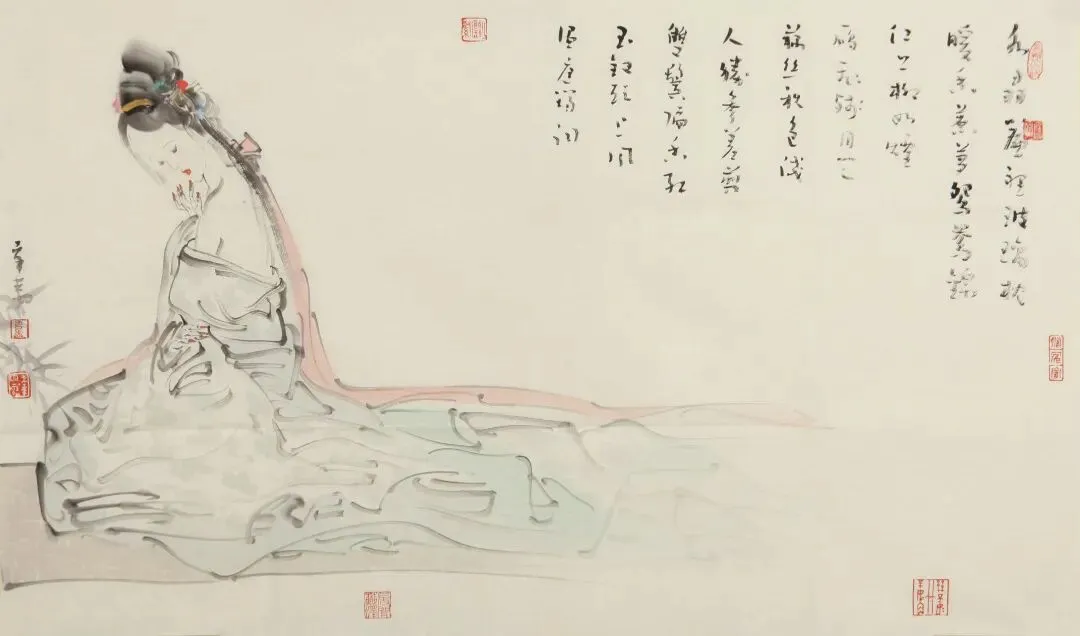 水晶簾裡玻璃枕
暖香惹夢鴛鴦錦
江上柳如煙
雁飛殘月天
藕絲秋色淺
人勝參差剪
雙鬢隔香紅
玉釵頭上風
溫庭筠詞